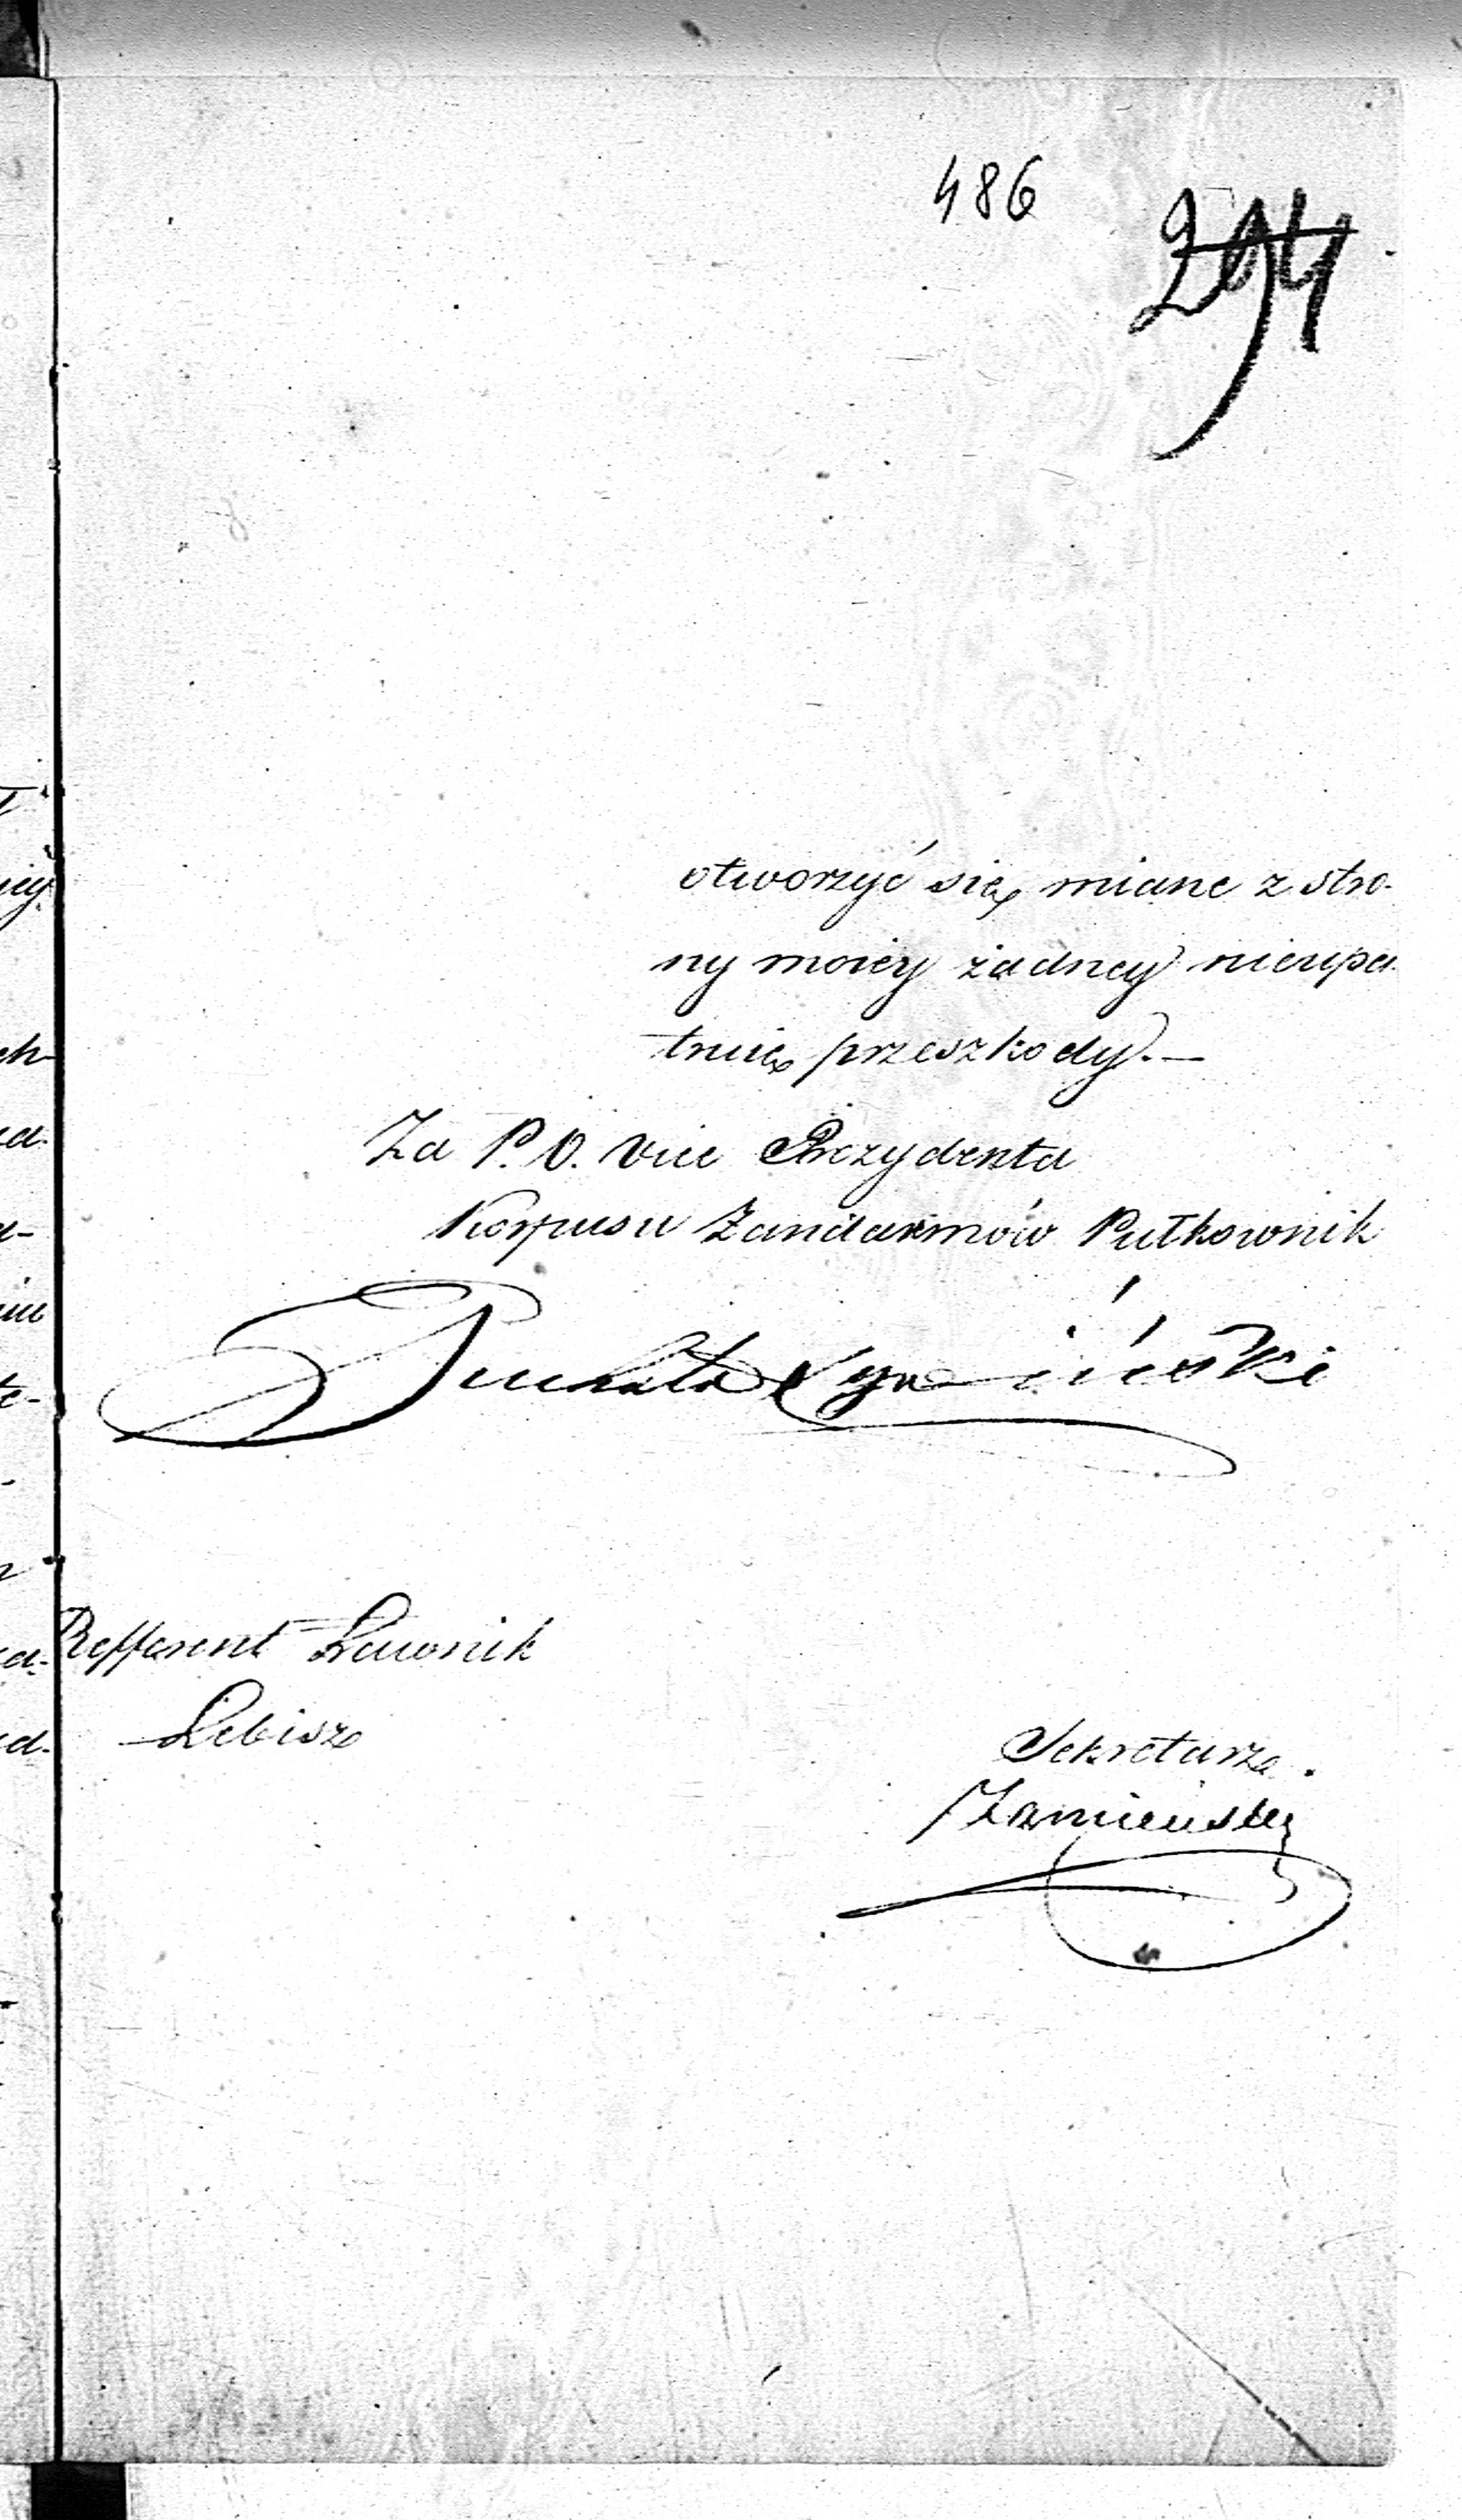 486
294
otworzyć się miane z stro-
ny moiey żadney nieupa-
truię przeszkody. —
Za P. O. Vice Prezydenta
Korpusu Żandarmów Pułkownik
Refferent Ławnik
Lebisz
Sekretarz